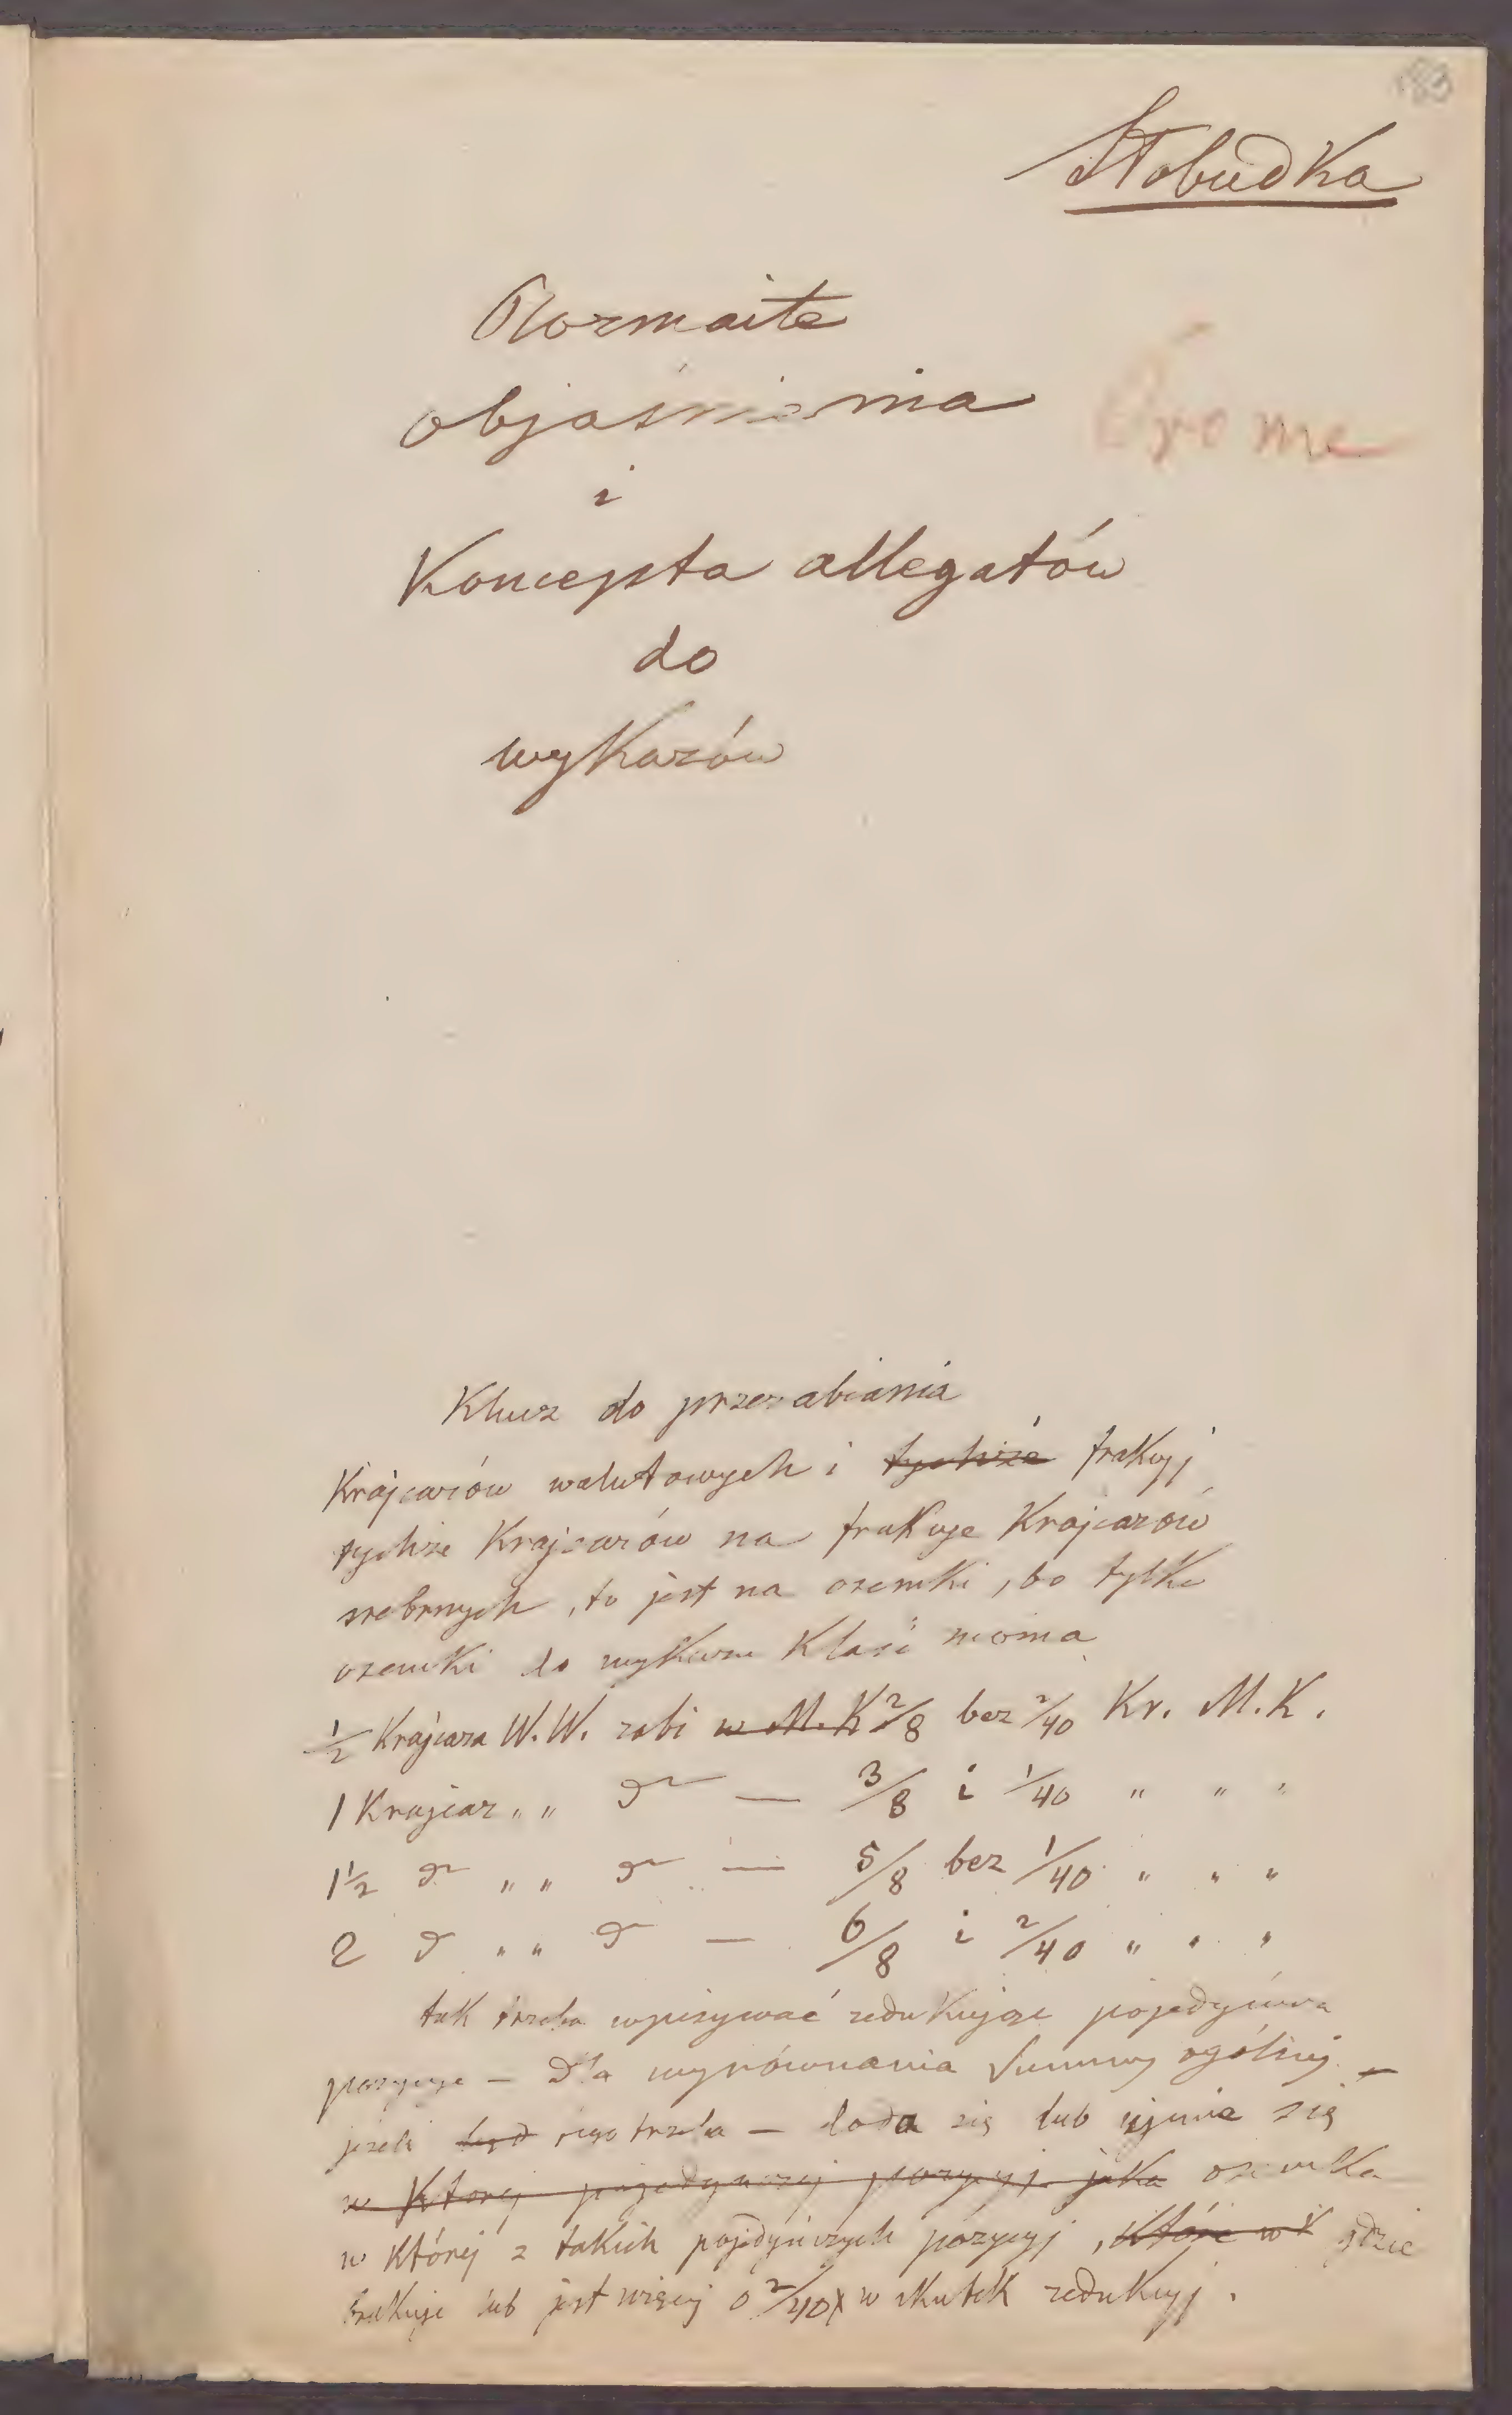 Słobudka
Rozmaite
objaśnienia
i
Koncepta allegatów
do
wykazów
Klucz do przerabiania
Krajcarów walutowych i tychże frakcyj
tychże Krajcarów na frakcyje Krajcarów
srebrnych, to jest na osemki, bo tylko
osemki do wykazu klaść można
1/2 Krajcara W.W. robi w M.K 2/8 bez 2/40 Kr. M.K.
1 Krajcar " " do — 3/8 i 1/40 " " "
1 1/2 do " " do — 5/8 bez 1/40 " " "
2 do " " do — 6/8 i 2/40 " " "
tak trzeba wpisywać redukując pojedyńcze
pozycyje — Dla wyrównania Summy ogólnej —
jeżeli tego trzeba — doda się lub ujmie się
w której pojedynczej pozycyj jaka osemka
w której z takich pojedyńczych pozycyj, które w gdzie
brakuje lub jest więcej o 2/40 x w skutek redukcyj.